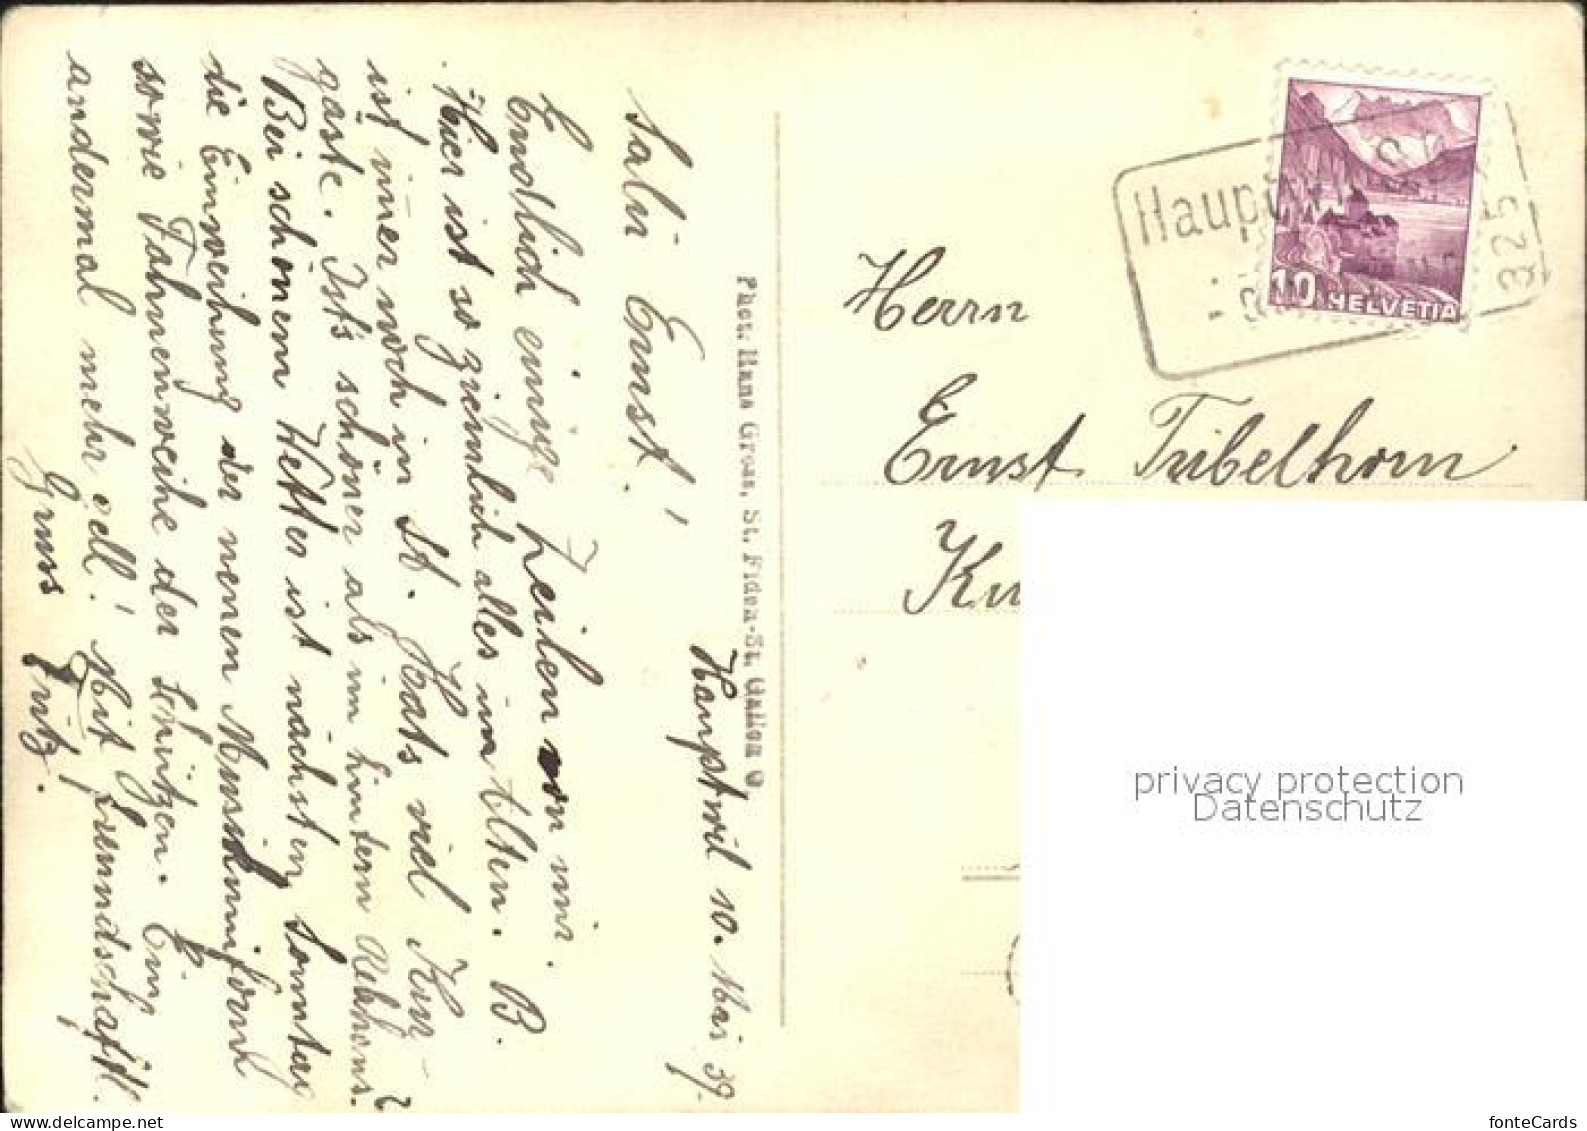 Hauptwil 10. Mai 39.
Salü Ernst!
Endlich einige Zeilen von mir.
Hier ist so ziemlich alles im Alten. B.
ist imer noch in St. Hats viel Kur-
gäste. Ists schöner als im hintern Rekhons.?
Bei schönem Wetter ist nächsten Sonntag
die Einweihung der neuen Musikuniform
sowie Fahnenweihe der Schützen. Ein
andermal mehr gell! Mit freundschaftl.
Gruss Fritz.
Phot. Hans Gross, St. Fiden-St. Gallen O.
Haupt
325
10 HELVETIA
Herrn
Ernst Tribelhorn
Ku
privacy protection
Datenschutz
fonteCards